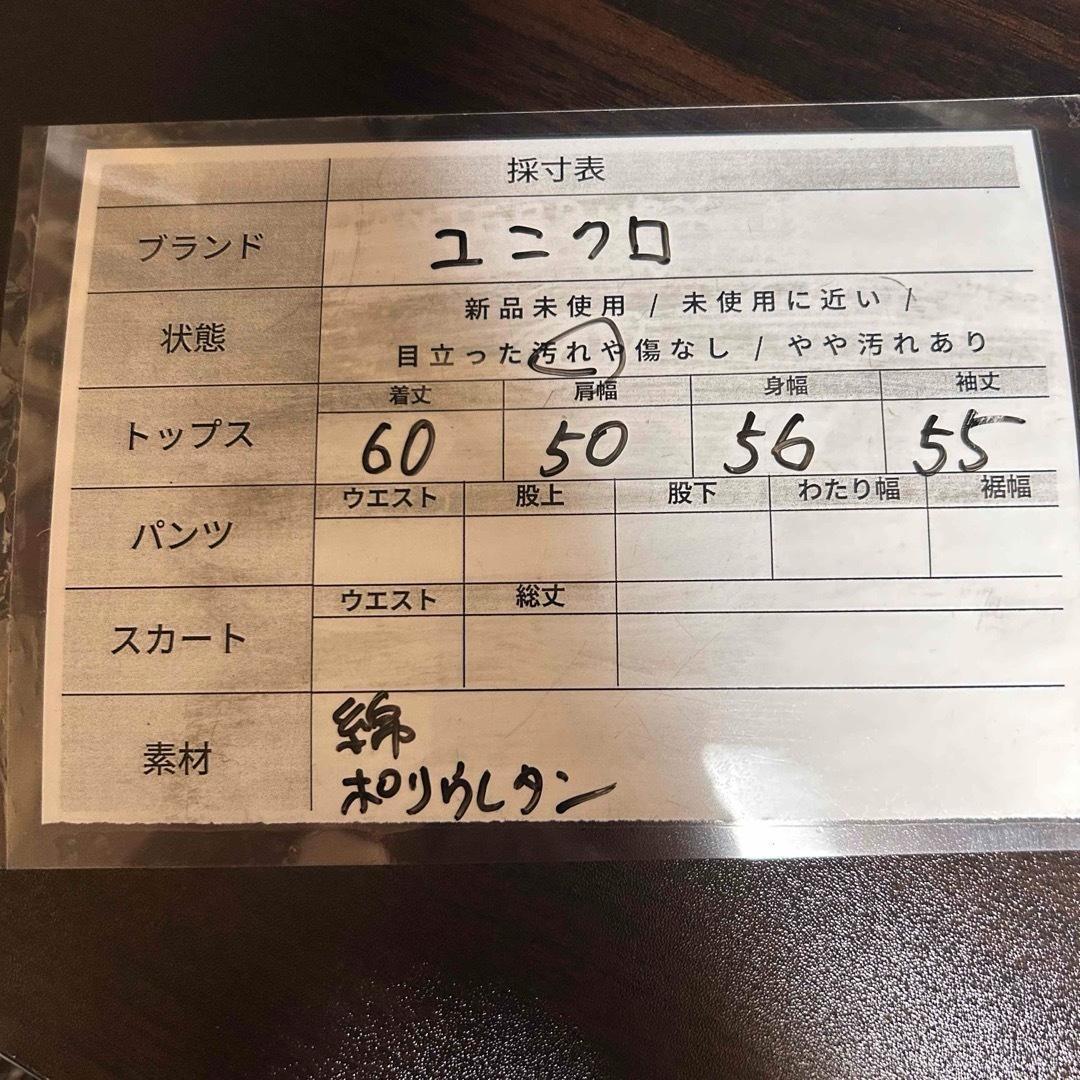 採寸表
ブランド ユニクロ
状態 新品未使用 / 未使用に近い /
目立った汚れや傷なし / やや汚れあり
トップス 着丈 肩幅 身幅 袖丈
60 50 56 55
パンツ ウエスト 股上 股下 わたり幅 裾幅
スカート ウエスト 総丈
素材 綿
ポリウレタン